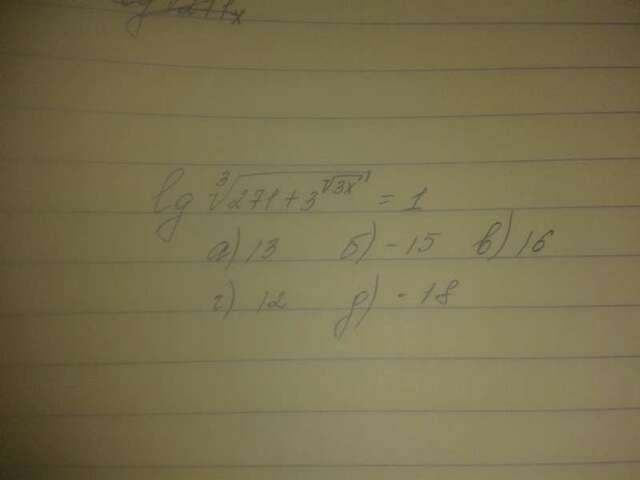 lg ∛(271 + 3^√(3x)) = 1
а) 13 б) -15 в) 16
г) 12 д) -18